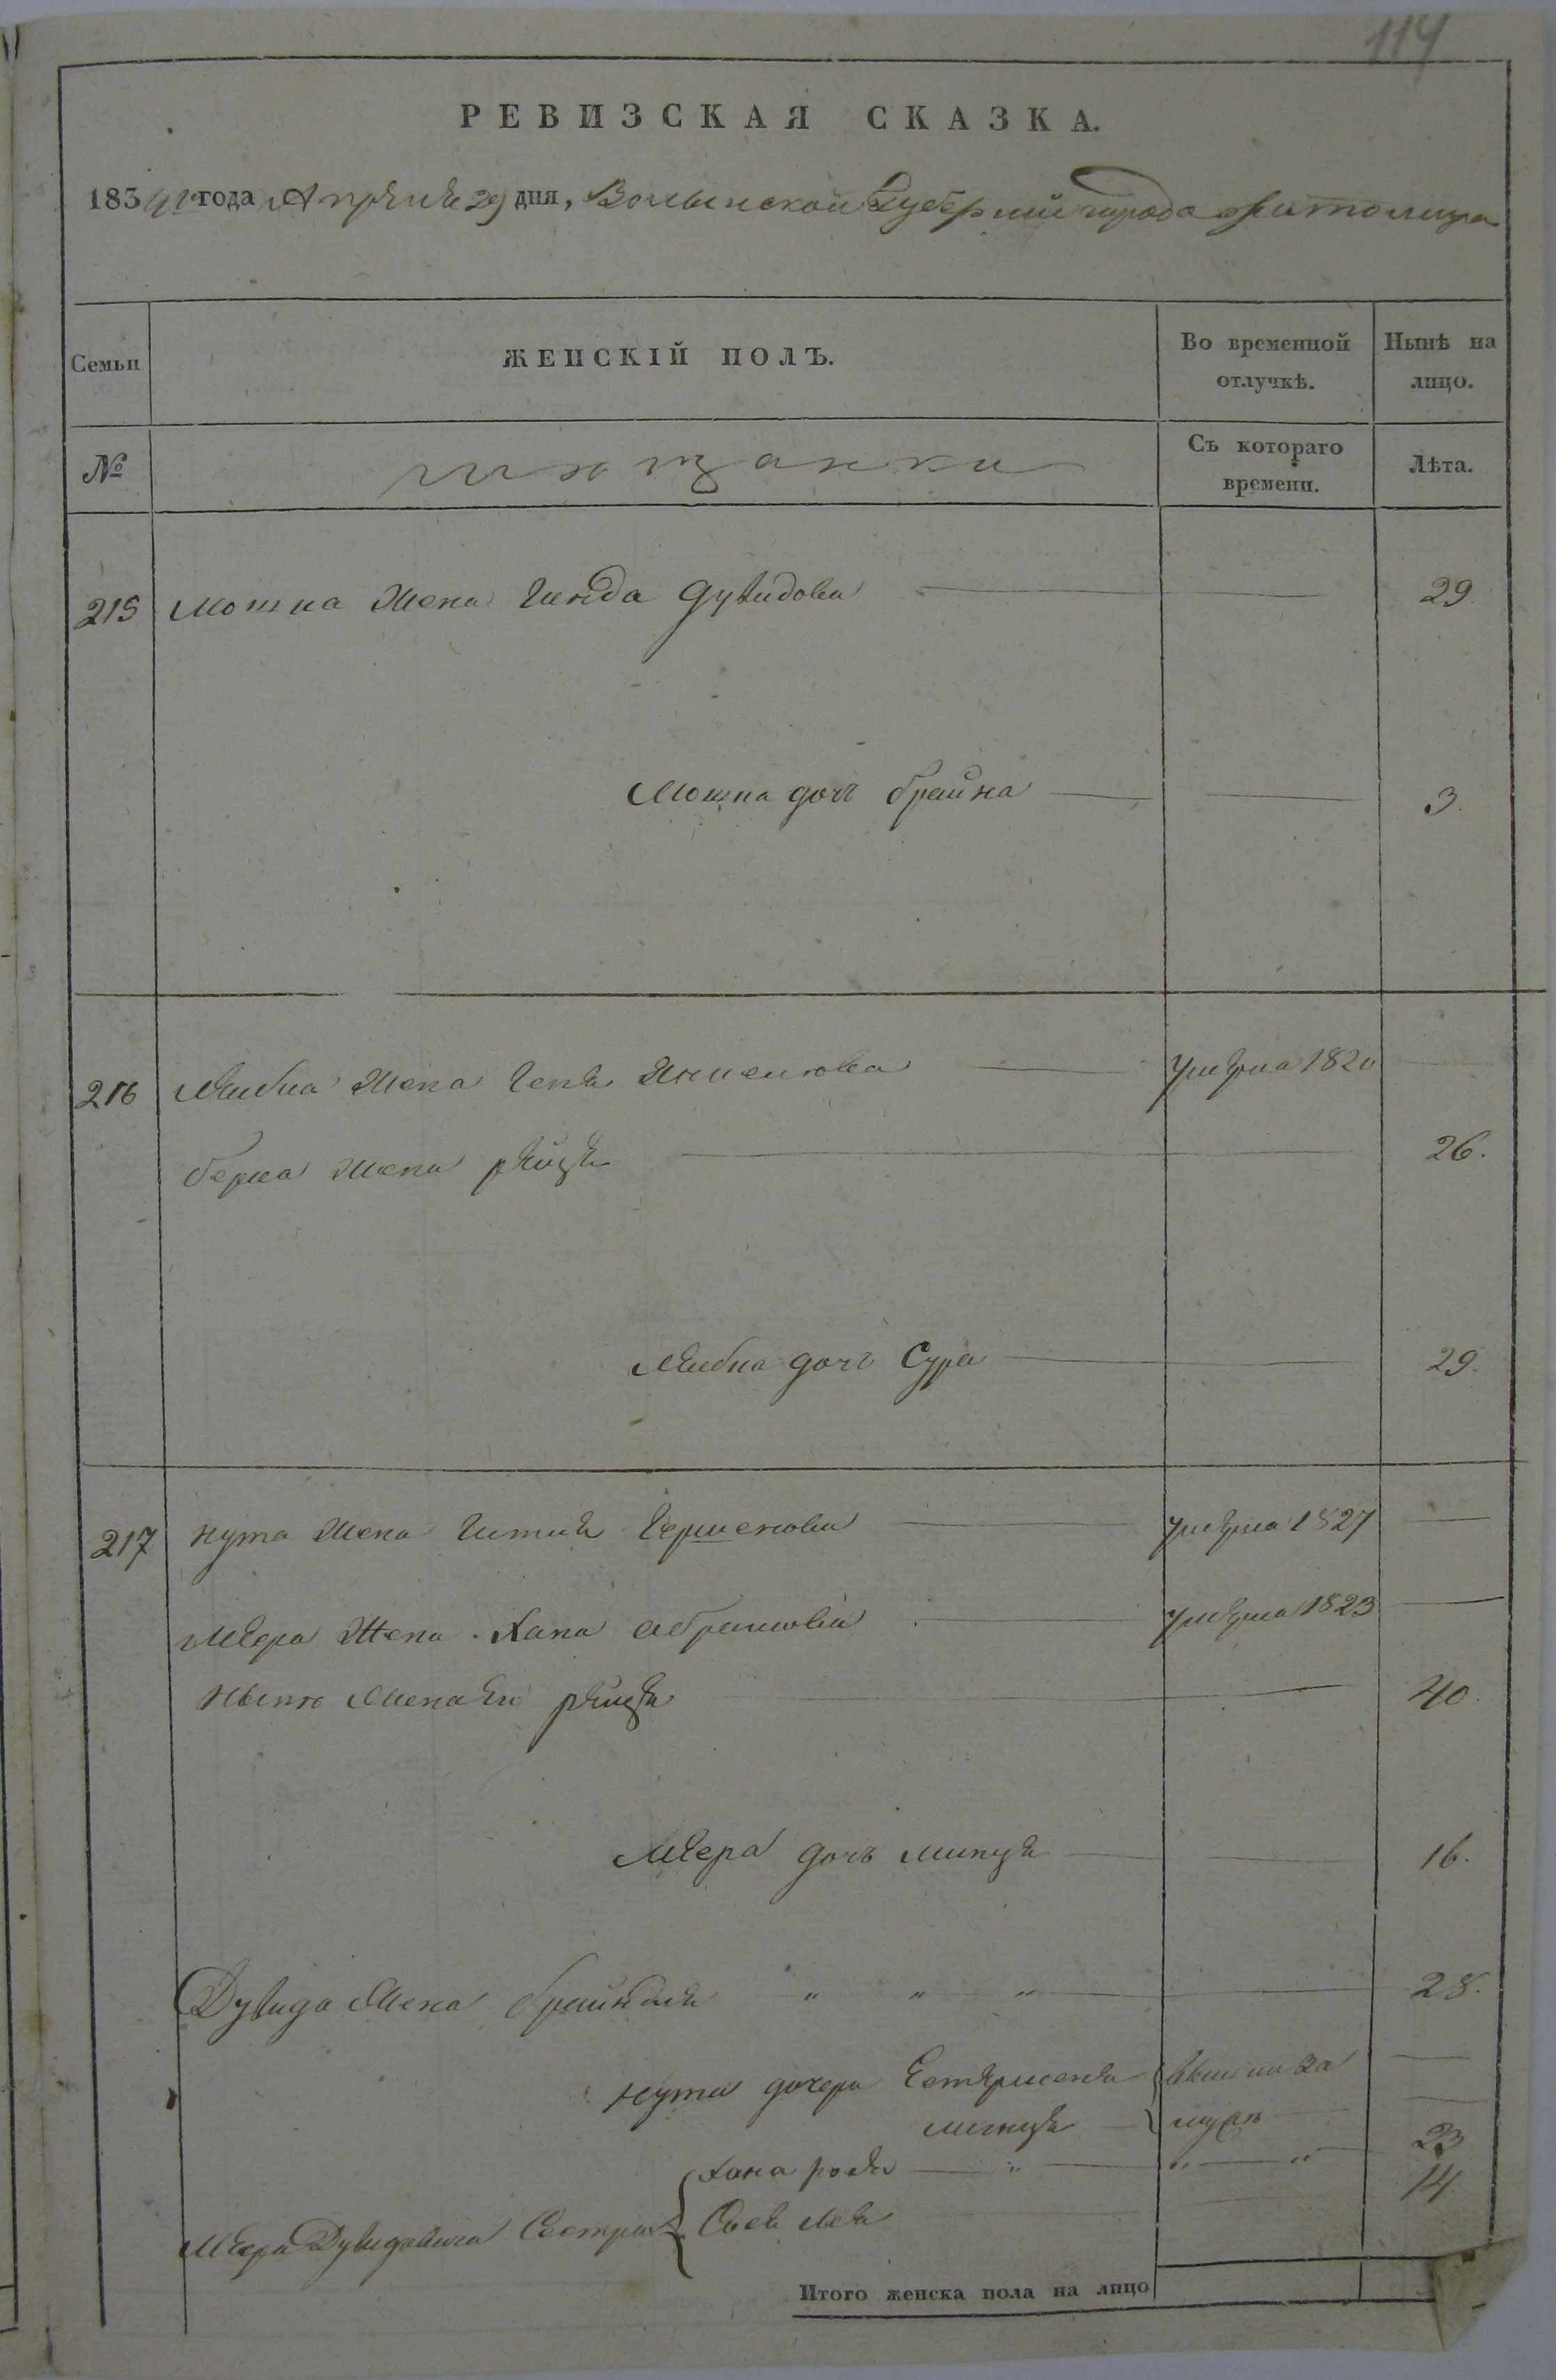 114
РЕВИЗСКАЯ СКАЗКА.
1834 го года Апреля 29 дня, Волынской Губернии города Житомира
Семьи
ЖЕНСКІЙ ПОЛЪ.
Во временной отлучкѣ.
Нынѣ на лицо.
№
мещанки
Съ котораго времени.
Лѣта.
215 Мошка жена Гинда Дувидова 29.
Мошка дочь Брайна 3.
216 Лейбка жена умерла 1820
Берка жена Рейзя 26.
Лейбка дочь Сура 29.
217 Нута жена Гитля Гершкова умерла 1827
Меера жена Хана Абрамова умерла 1823
Нынѣ жена ей 40.
Меера дочь Минця 16.
Дувида жена Брайндля " " " 28.
Нута дочери вышли за
мужъ
Хана " " " 23
Меера Дувидовича Сестра 14
Итого женска пола на лицо